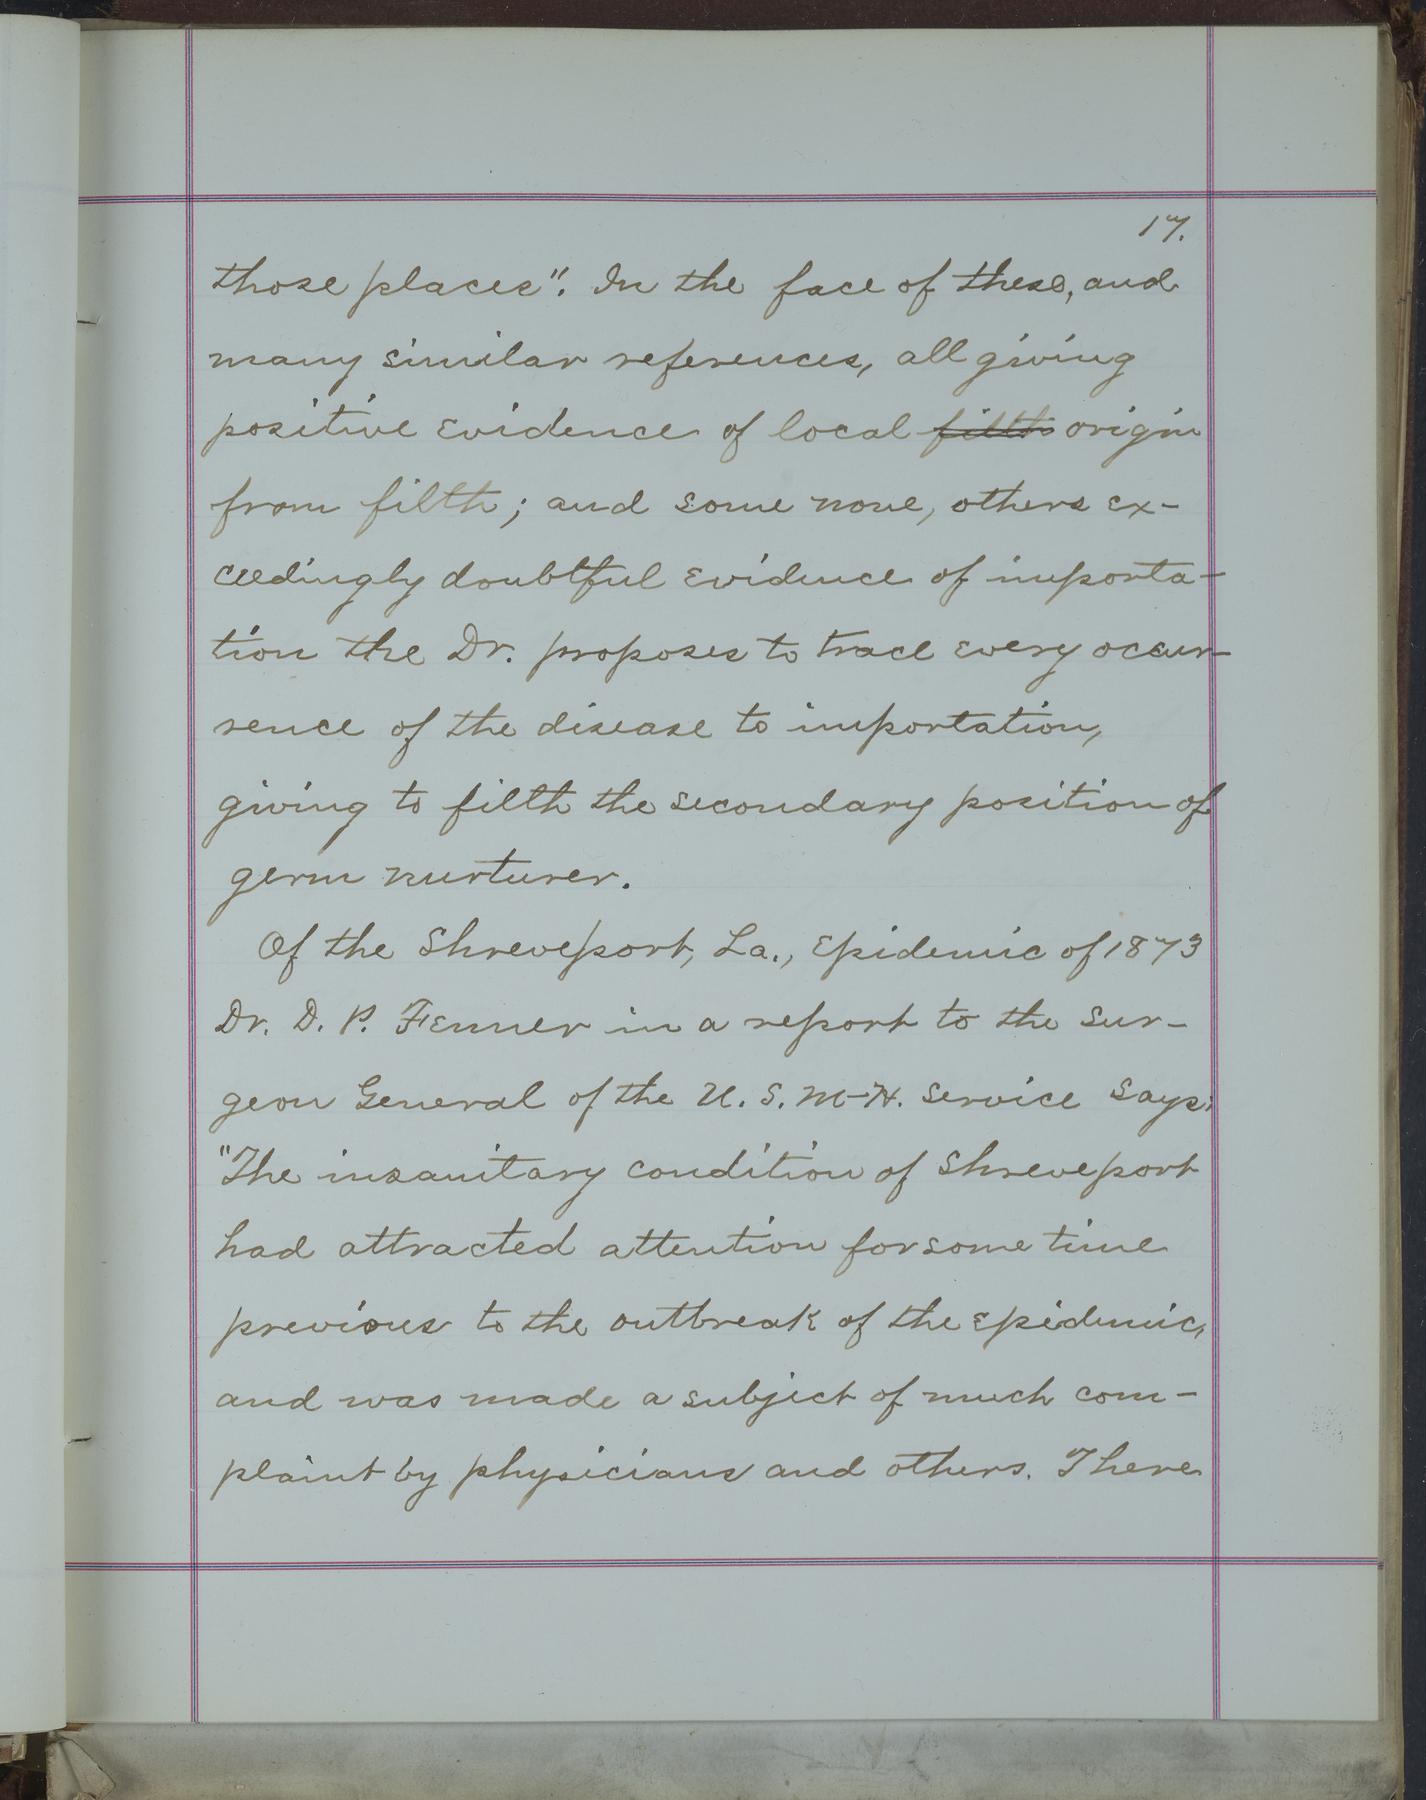 17.
those places". In the face of these, and
many similar references, all giving
positive evidence of local filth origin
from filth; and some none, others ex-
ceedingly doubtful evidence of importa-
tion the Dr. proposes to trace every occur-
rence of the disease to importation,
giving to filth the secondary position of
germ nurturer.
Of the Shreveport, La., Epidemic of 1873
Dr. D. P. Fenner in a report to the Sur-
geon General of the U. S. M-H. Service says:
"The insanitary condition of Shreveport
had attracted attention for some time
previous to the outbreak of the epidemic,
and was made a subject of much com-
plaint by physicians and others. There